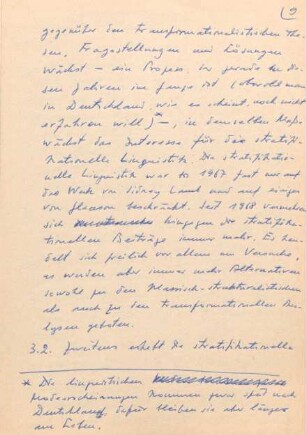 9
gegenüber den transformationalistischen The-
sen, Fragestellungen und Lösungen
wächst – ein Prozess, der gerade in die-
sen Jahren im Gange ist (obwohl man
in Deutschland, wie es scheint, noch nichts
erfahren will)* –, in demselben Maß
wächst das Interesse für die stratifi-
kationelle Linguistik. Die stratifikatio-
nelle Linguistik war bis 1967 fast nur auf
die Werke von Sidney Lamb und auf einiges
von Gleason beschränkt. Seit 1968 vermehren
sich hingegen die stratifika-
tionellen Beiträge immer mehr. Es han-
delt sich freilich vor allem um Versuche,
es werden aber immer mehr Alternativen
sowohl zu den klassisch-strukturalistischen
als auch zu den transformationellen Ana-
lysen geboten.
3.2. Zweitens erhebt die stratifikationelle
* Die linguistischen
Modeerscheinungen kommen zwar spät nach
Deutschland, dafür bleiben sie aber länger
am Leben.